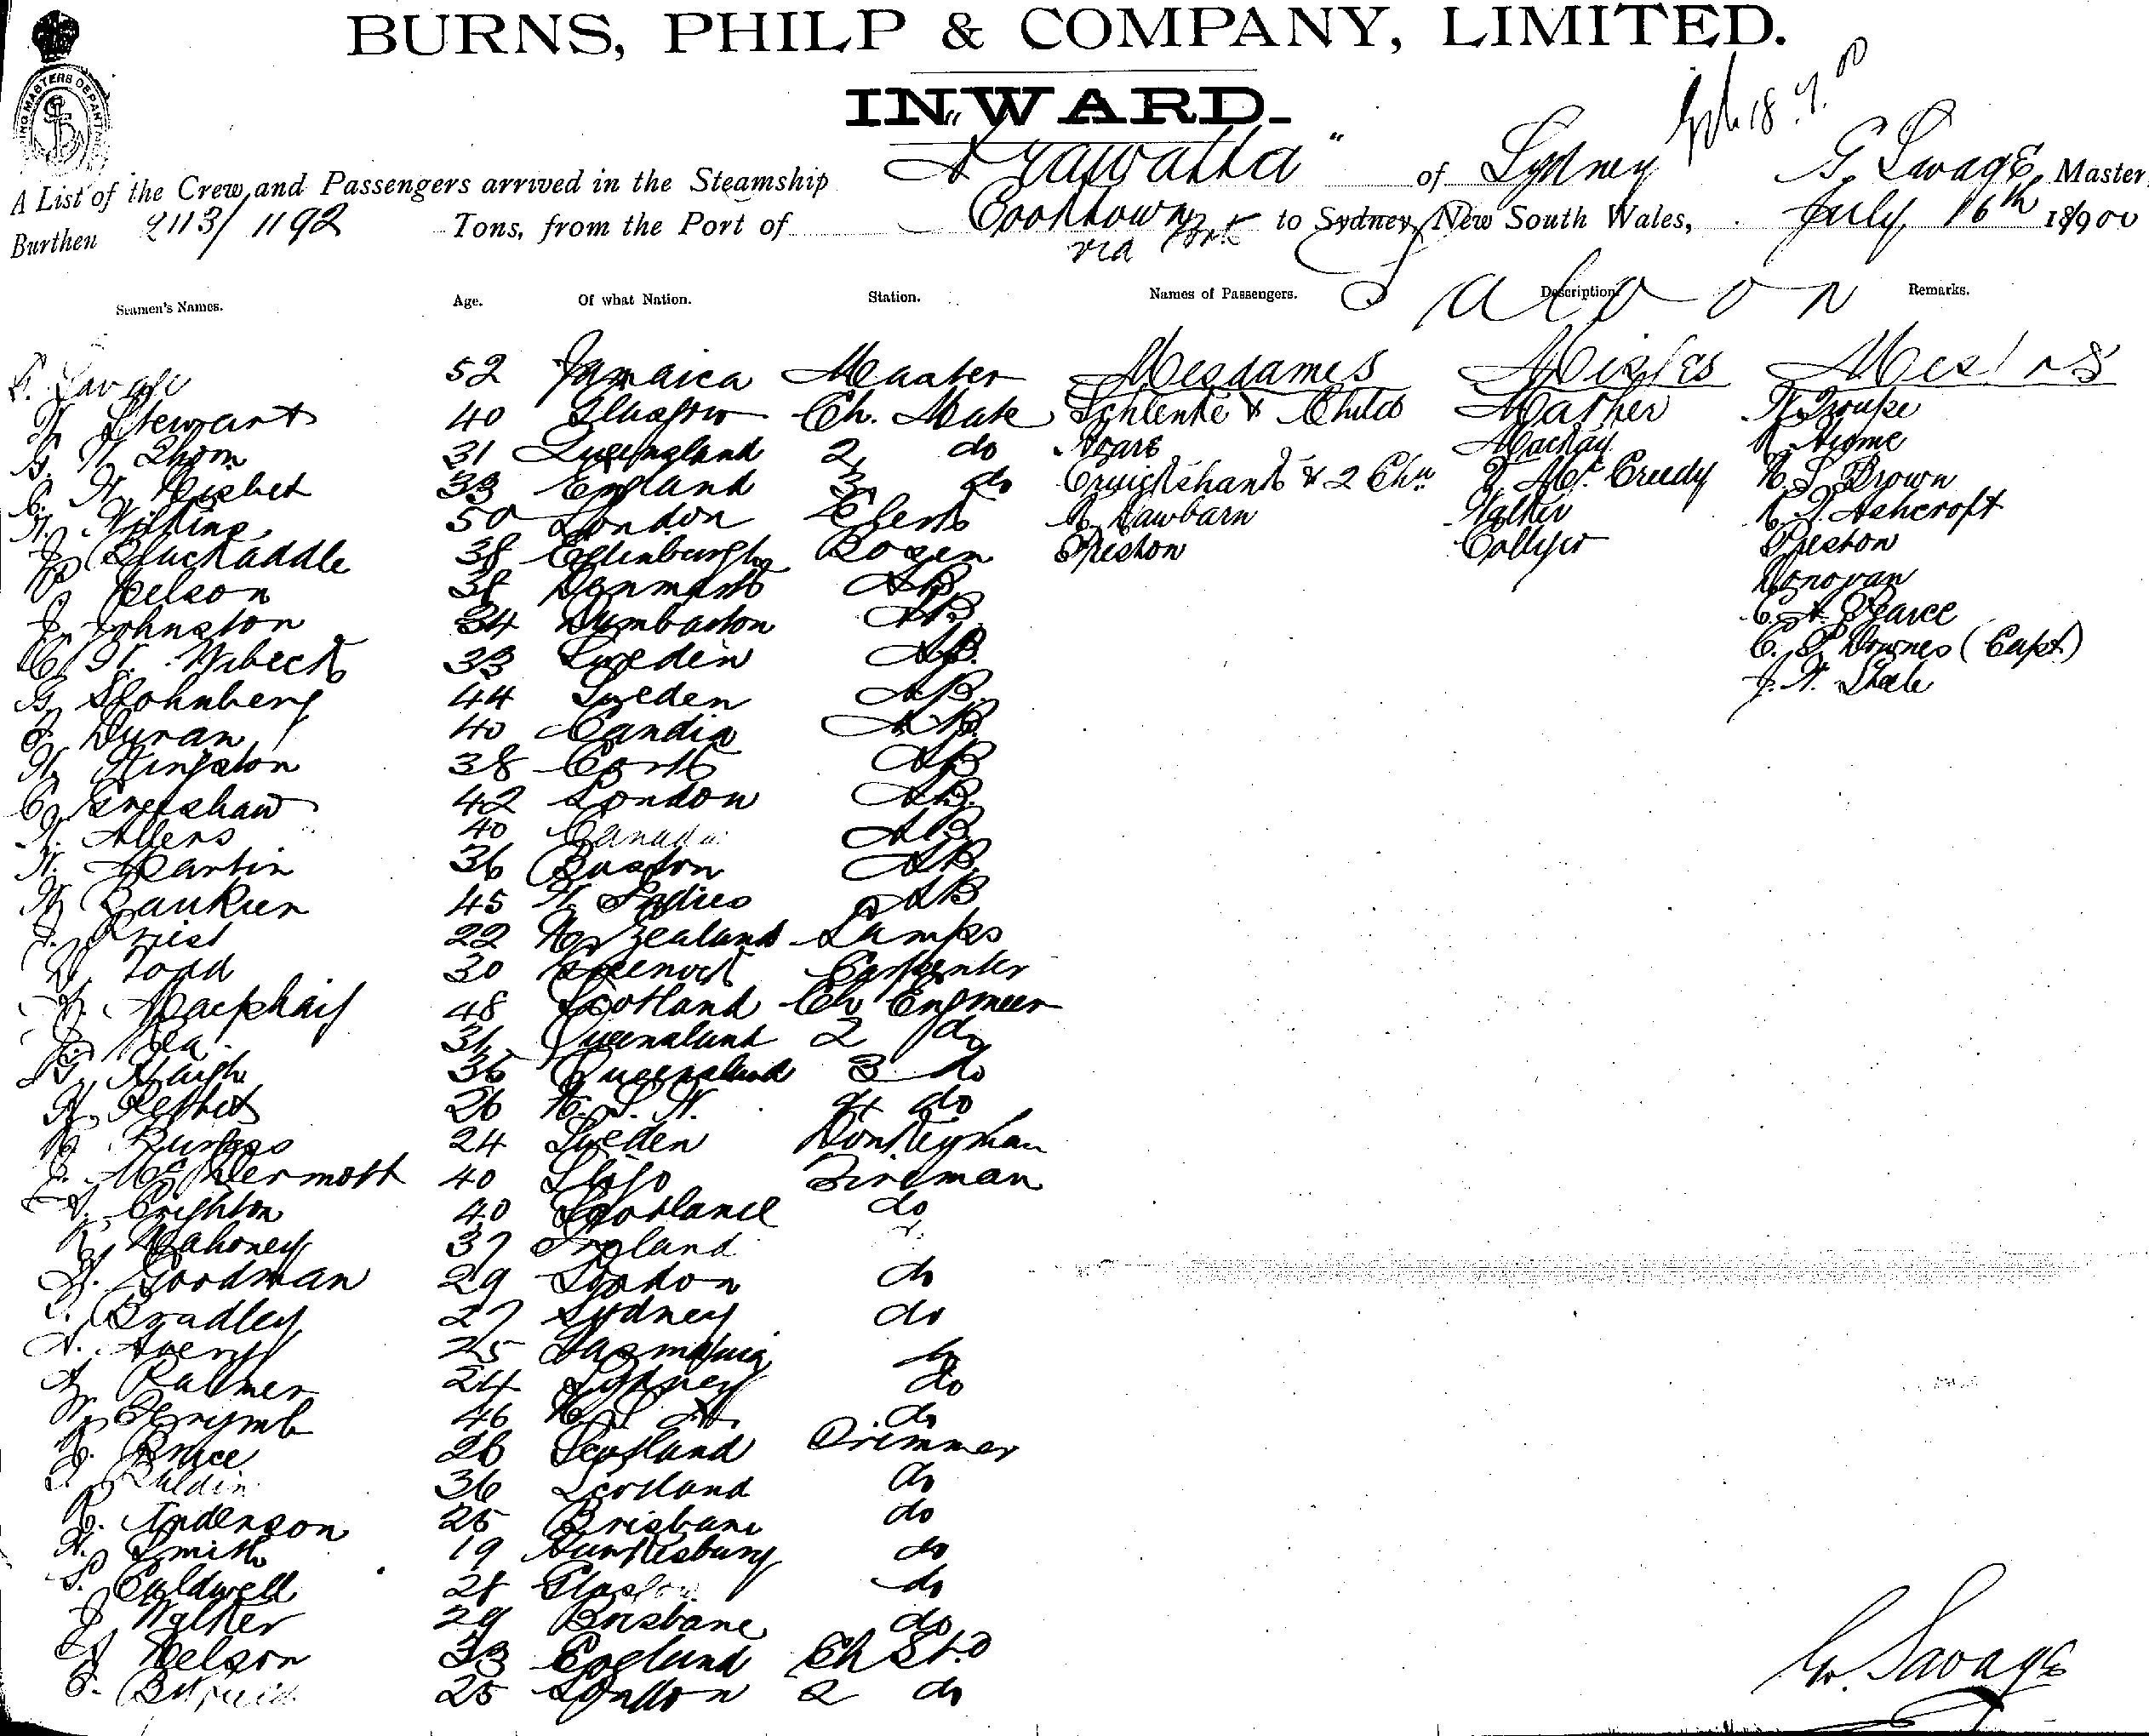 BURNS, PHILP & COMPANY, LIMITED.
INWARD.
SHIPPING MASTERS DEPARTMENT
18.7.00
A List of the Crew and Passengers arrived in the Steamship "Arawatta" of Sydney G. Savage, Master
Burthen 2113/1192 Tons, from the Port of Cooktown via to Sydney, New South Wales, July 16th 18/900
Seamen's Names. Age. Of what Nation. Station. Names of Passengers. Description Remarks.
Saloon
G. Savage 52 Jamaica Master Mesdames Misses Messrs
W Stewart 40 Glasgow Ch. Mate Schlenke & Child Mather Troupe
G. W. Thom 31 Queensland 2 do Hoare Mackay Home
C. H. Nisbet 33 England 3 do Cruickshank & 2 Chn Mc Creedy Brown
Wilkins 50 London Clerk Rawbarn Walker Ashcroft
J. Bluckaddle 38 Edinburgh Bosen Preston Collyer Preston
Nelson 38 Denmark AB Donovan
J. Johnston 34 Dumbarton AB C. A. Pearce
Wibeck 33 Sweden AB. C. P. Downes (Capt)
G. Slohnberg 44 Sweden AB. J. W. Steele
J. Duran 40 Candia AB.
Kingston 38 Cork AB
C. Greeshaw 42 London AB.
Allens 40 Canada AB
W. Martin 36 Boston AB.
45 W. Indies AB
Priest 22 N. Zealand Lamps
Todd 30 Greenock Carpenter
Macphail 48 Scotland Ch Engineer
Rea 31 Queensland 2 do
Haigh 36 Queensland 3 do
26 N. S. W. 4 do
Burgess 24 Sweden Donkeyman
McDermott 40 Sligo Fireman
Crighton 40 Scotland do
Mahoney 37 Ireland
Goodman 29 London do
Bradley 27 Sydney do
A. Avery 25 Tasmania do
Palmer 24 Sydney do
46 N S W do
Bruce 26 Scotland Trimmer
36 Scotland do
Anderson 25 Brisbane do
H. Smith 19 do
Caldwell 28 Glasgow do
J Walker 29 Brisbane do
Nelson 33 England Ch Std
25 London 2 do
G. Savage